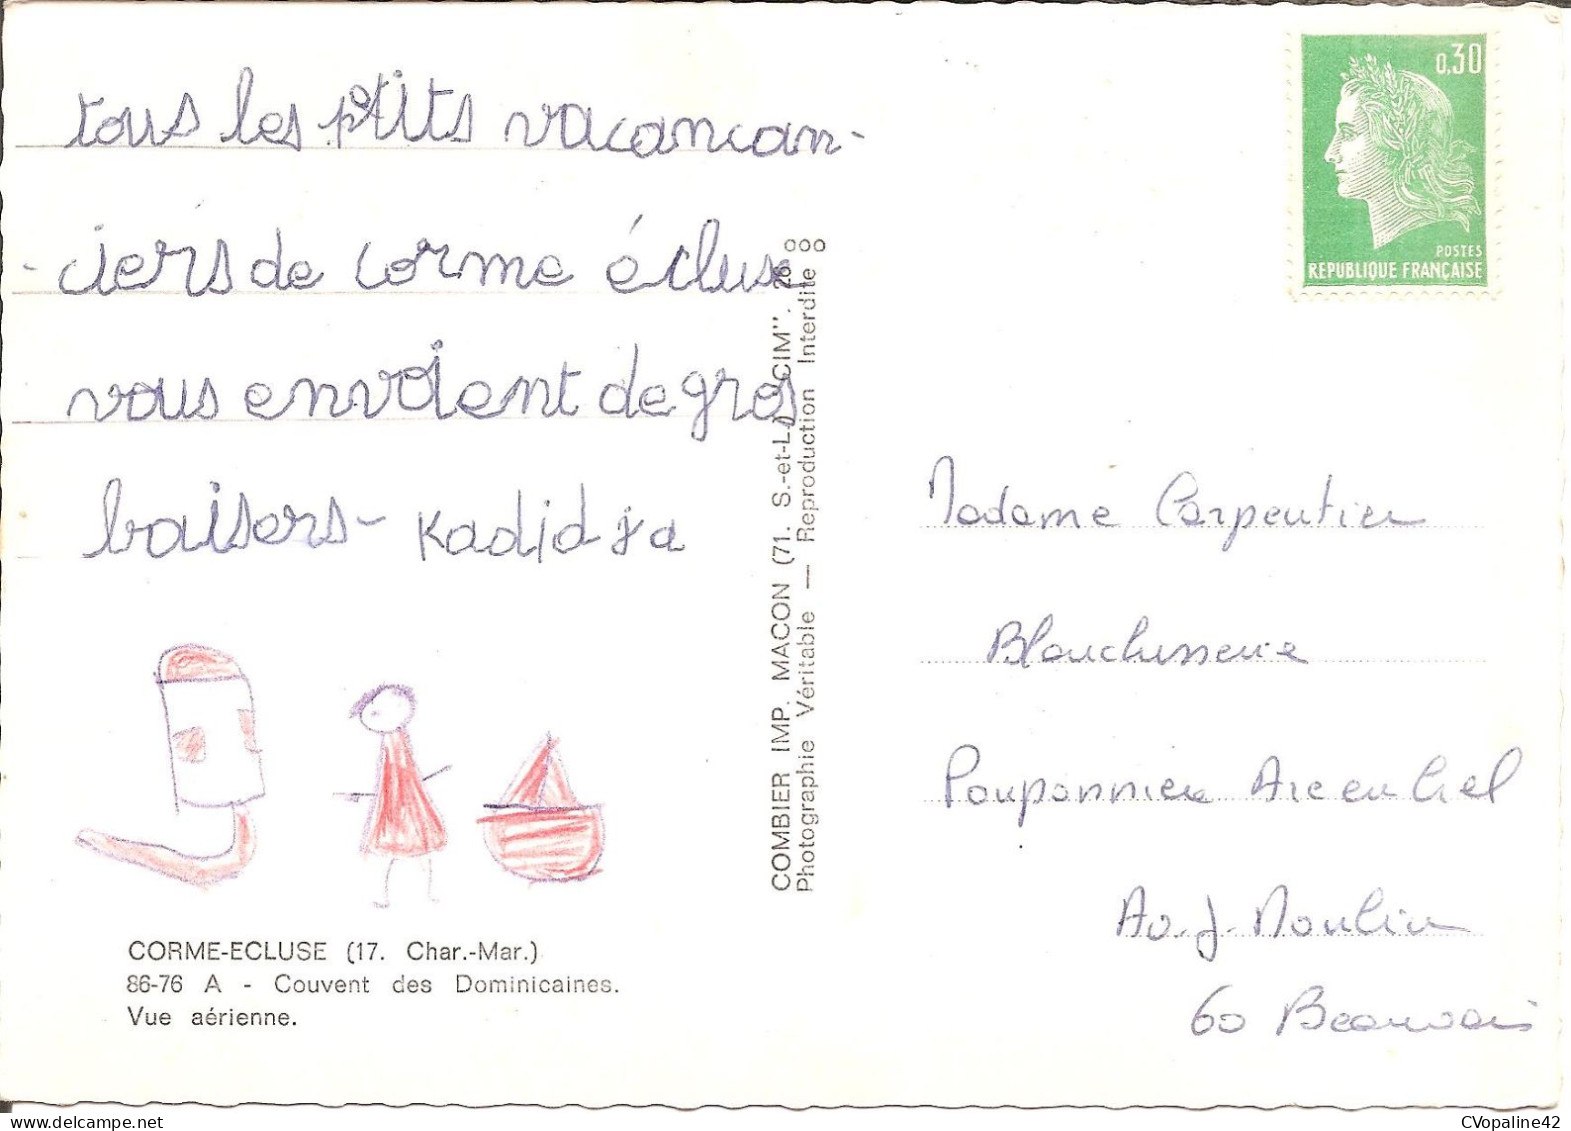 tous les p'tits vacancan-
-ciers de corme écluse
vous envoient de gros
baisers - Kadidja
CORME-ECLUSE (17. Char.-Mar.)
86-76 A - Couvent des Dominicaines.
Vue aérienne.
COMBIER IMP. MACON (71. S.-et-L.) "CIM".
Photographie Véritable — Reproduction Interdite
0,30
POSTES
REPUBLIQUE FRANÇAISE
Madame Carpentier
Blanchisserie
Pouponnière Arc en Ciel
Av. J. Moulin
60 Beauvais
CVopaline42